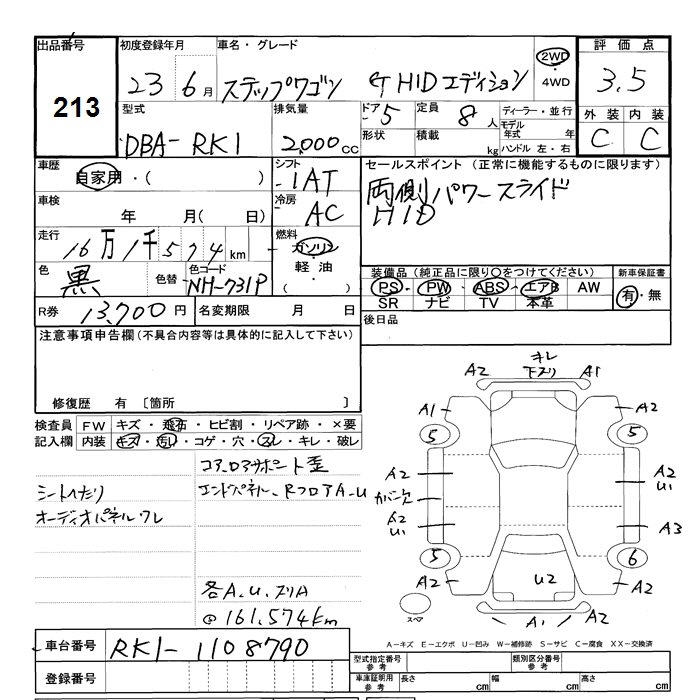 出品番号
213
初度登録年月
23 6月
車名・グレード
ステップワゴン G HIDエディション
2WD
・
4WD
評価点
3.5
外装 内装
C C
型式
DBA-RK1
排気量
2,000cc
ドア・
5
形状
定員
8人
積載
kg
ディーラー・並行
モデル年式 年
ハンドル 左・右
車歴
自家用・( )
シフト
IAT
セールスポイント (正常に機能するものに限ります)
両側パワースライド
HID
車検
年 月( 日)
冷房
AC
走行
16万1千574km
燃料
ガソリン
軽・油
・( )
色
黒
色替
色コード
NH-731P
装備品 (純正品に限り○をつけてください)
PS・PW・ABS・エアB AW
SR ナビ TV 本革
新車保証書
有・無
R券 13,700円
名変期限 月 日
後日品
注意事項申告欄(不具合内容等は具体的に記入して下さい)
修復歴 有 〔箇所 〕
検査員
記入欄
FW キズ・飛石・ヒビ割・リペア跡・×要
内装 キズ・汚れ・コゲ・穴・スレ・キレ・破レ
コアロアサポート歪
シートヘたり
エンドパネル、RフロアA、U
オーディオパネルワレ
各A.U.スリA
@161,574km
キレ
下スリ
A2 A1
A1 A2
5 5
A2
A2
U1
カバー欠
A2
U1
A3
5 6
A2 A2
U2
A1 A2
スペア
A-キズ E-エクボ U-凹み W-補修跡 S-サビ C-腐食 XX-交換済
車台番号 RK1-1108790
登録番号
型式指定番号
参考
類別区分番号
参考
車庫証明用
参考
長さ cm
幅 cm
高さ cm